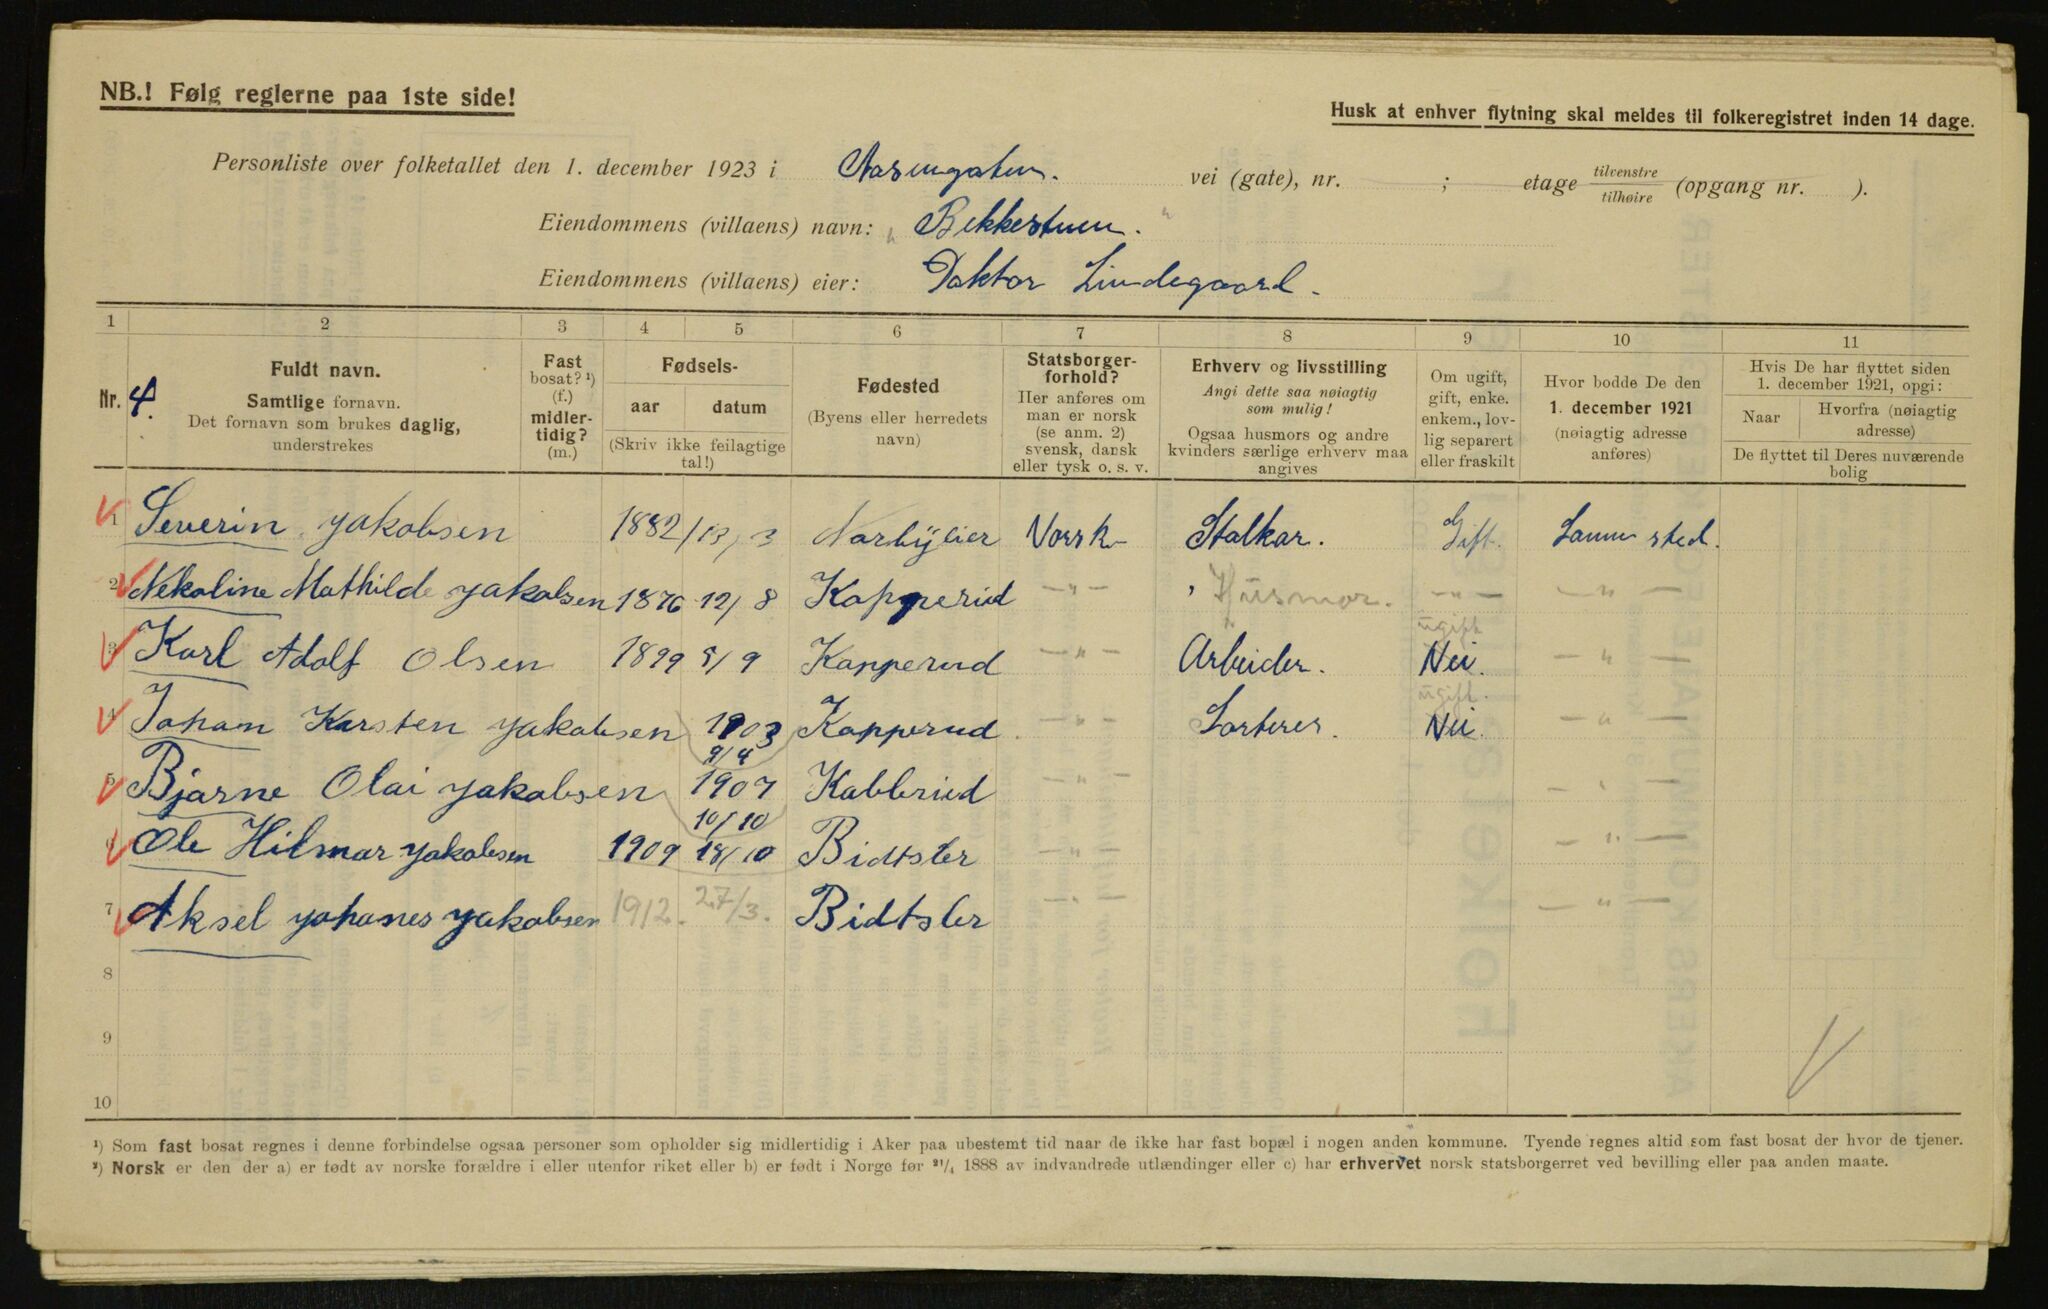 NB.! Følg reglerne paa 1ste side!
Husk at enhver flytning skal meldes til folkeregistret inden 14 dage.
Personliste over folketallet den 1. december 1923 i Aasengaten. vei (gate), nr. ; etage tilvenstre / tilhøire (opgang nr. ).
Eiendommens (villaens) navn: " Bekkestuen. "
Eiendommens (villaens) eier: Doktor Lindegaard.
1 2 3 4 5 6 7 8 9 10 11
Nr. 4.
Fuldt navn.
Samtlige fornavn.
Det fornavn som brukes daglig,
understrekes
Fast
bosat? ¹)
(f.)
midler-
tidig?
(m.)
Fødsels-
aar datum
(Skriv ikke feilagtige
tal!)
Fødested
(Byens eller herredets
navn)
Statsborger-
forhold?
Her anføres om
man er norsk
(se anm. 2)
svensk, dansk
eller tysk o. s. v.
Erhverv og livsstilling
Angi dette saa nøiagtig
som mulig!
Ogsaa husmors og andre
kvinders særlige erhverv maa
angives
Om ugift,
gift, enke.
enkem., lov-
lig separert
eller fraskilt
Hvor bodde De den
1. december 1921
(nøiagtig adresse
anføres)
Hvis De har flyttet siden
1. december 1921, opgi:
Naar
Hvorfra (nøiagtig
adresse)
De flyttet til Deres nuværende
bolig
1 Severin Yakobsen 1882 13/3 Norsk Stalkar. Gift. Samme sted.
2 Nekoline Mathilde Yakobsen 1876 12/8 Kapperud -"- Husmor. -"- -"-
3 Karl Adolf Olsen 1899 5/9 Kapperud -"- Arbeider. ugift Nei. -"-
4 Johan Karsten Yakobsen 1903 9/4 Kapperud -"- Sorterer. ugift. Nei. -"-
5 Bjarne Olai Yakobsen 1907 10/10 Kabberud -"- -"-
6 Ole Hilmar Yakobsen 1909 18/10 Bidtsler -"- -"-
7 Aksel Yohanes Yakobsen 1912. 27/3. Bidtsler -"- -"-
8
9
10
¹) Som fast bosat regnes i denne forbindelse ogsaa personer som opholder sig midlertidig i Aker paa ubestemt tid naar de ikke har fast bopæl i nogen anden kommune. Tyende regnes altid som fast bosat der hvor de tjener.
²) Norsk er den der a) er født av norske forældre i eller utenfor riket eller b) er født i Norge før ²¹/₄ 1888 av indvandrede utlændinger eller c) har erhvervet norsk statsborgerret ved bevilling eller paa anden maate.